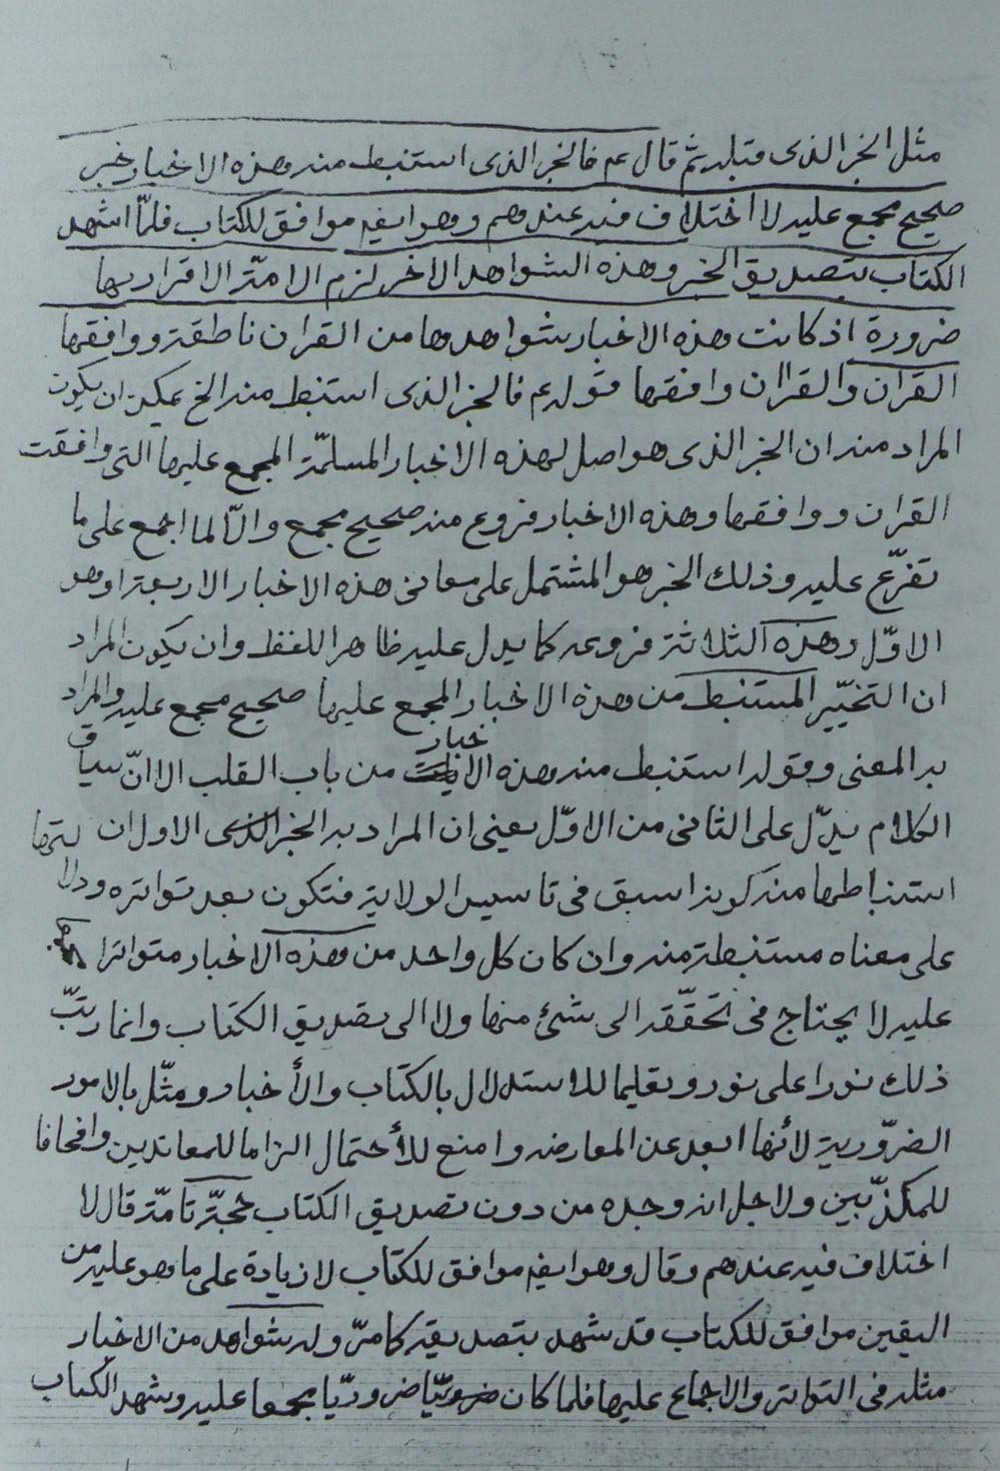 مثل الخبر الذى قبله ثم قال عم فالخبر الذى استنبط منه هذه الاخبار خبر
صحيح مجمع عليه لا اختلاف فيه عندهم وهو ايضا موافق للكتاب فلمّا شهد
الكتاب بتصديق الخبر وهذه الشواهد الاخر لزم الامّة الاقرار بها
ضرورة اذ كانت هذه الاخبار شواهدها من القران ناطقة ووافقها
القران والقران وافقها قوله عم فالخبر الذى استنبط منه الخ يمكن ان يكون
المراد منه ان الخبر الذى هو اصل لهذه الاخبار المسلمّة المجمع عليها التى وافقت
القران ووافقها وهذه الاخبار فروع منه صحيح مجمع والّا لما اجمع على ما
تفرّع عليه وذلك الخبر هو المشتمل على معانى هذه الاخبار الاربعة او هو
الاوّل وهذه الثلاثة فروعه كما يدل عليه ظاهر اللفظ وان يكون المراد
ان الخبر المستنبط من هذه الاخبار المجمع عليها صحيح مجمع عليه والمراد
به المعنى وقوله استنبط منه هذه الاخبار من باب القلب الا انّ سياق
الكلام يدّل على الثانى من الاوّل يعنى ان المراد به الخبر الاول ان
استنباطها منه كونه اسبق فى تاسيس الولاية فتكون بعد تواتره
على معناه مستنبطة منه وان كان كل واحد من هذه الاخبار متواترا
عليه لا يحتاج فى تحقّقه الى شئ منها ولا الى تصديق الكتاب وانما رتبّ
ذلك نورا على نور وتعليما للاستدلال بالكتاب والأخبار ومثّل بالامور
الضرّورية لأنها ابعد عن المعارضه وامنع للأحتمال الزاما للمعاندين وافحاما
للمكذّبين ولاجل انه وحده من دون تصديق الكتاب حجّة تامّة قال لا
اختلاف فيه عندهم وقال وهو ايضا موافق للكتاب لا زيادة على ما هو عليه من
اليقين موافق للكتاب قد شهد بتصديقه كما مرّ وله شواهد من الاخبار
مثله فى التواتر والاجماع عليها فلما كان ضروريّا مجمعا عليه وشهد الكتاب